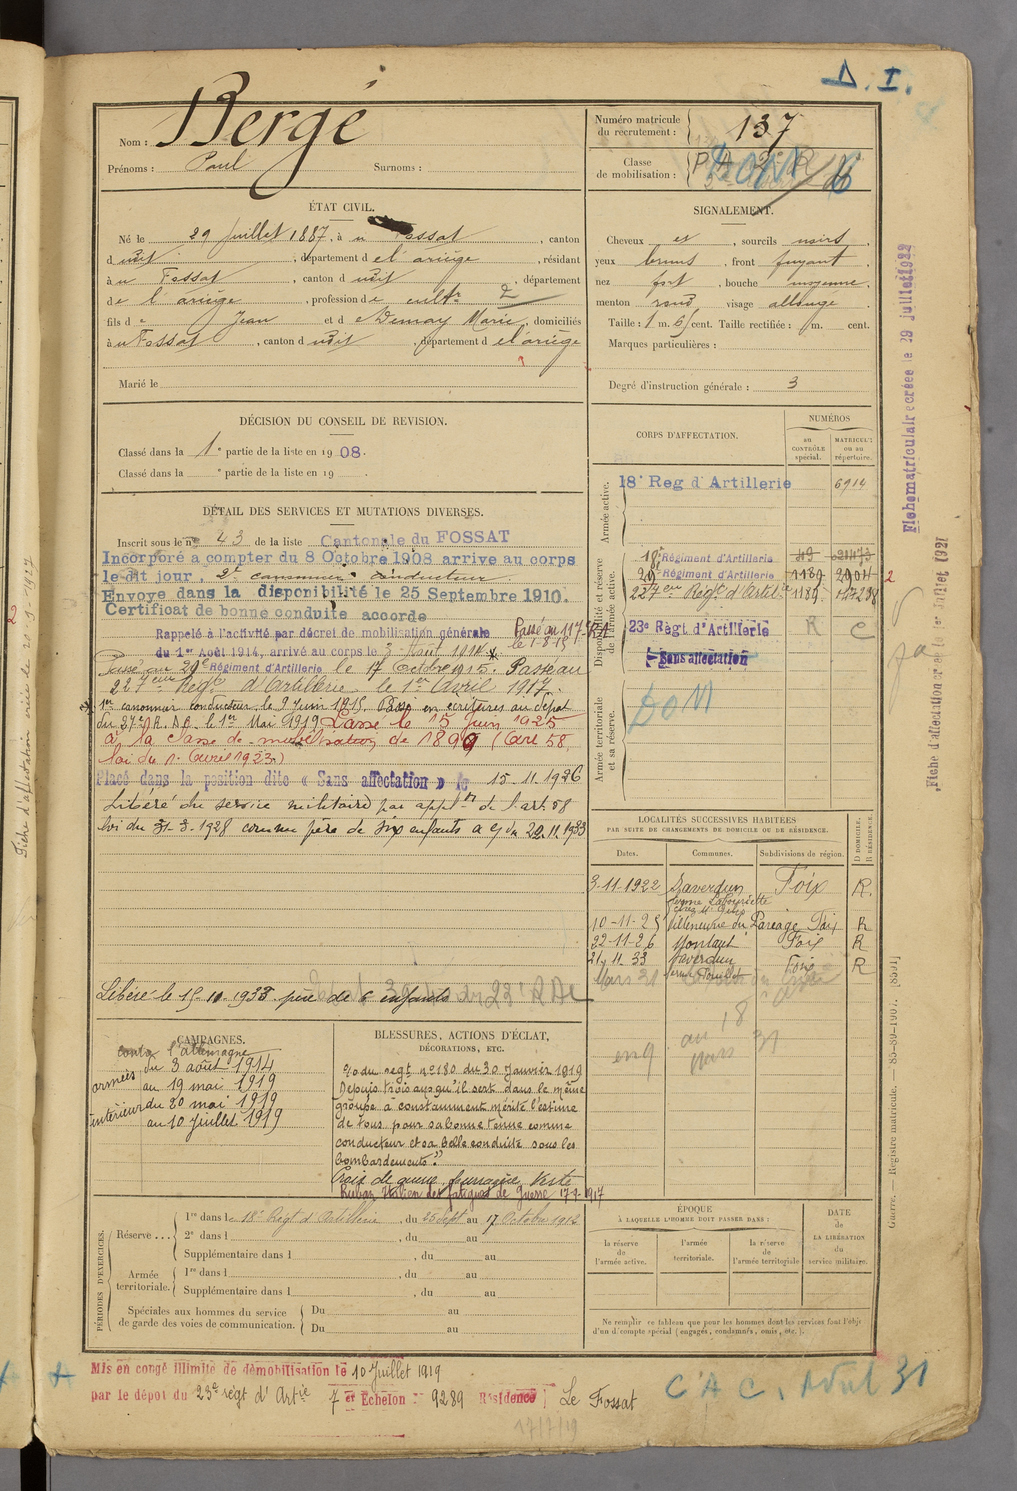 D. I.
Nom : Bergé
Prénoms : Paul Surnoms :
Numéro matricule du recrutement : 137
Classe de mobilisation :
ÉTAT CIVIL.
Né le 29 Juillet 1887, à u Fossat, canton
d udit, département de l'ariège, résidant
à u Fossat, canton d udit, département
de l'ariège, profession de cultr 2
fils de Jean et de Demay Marie, domiciliés
à u Fossat, canton d udit, département de l'ariège
Marié le
SIGNALEMENT.
Cheveux et, sourcils noirs,
yeux bruns, front fuyant,
nez fort, bouche moyenne,
menton rond visage allongé
Taille : 1 m. 61 cent. Taille rectifiée : m. cent.
Marques particulières :
Degré d'instruction générale : 3
DÉCISION DU CONSEIL DE REVISION.
Classé dans la 1e partie de la liste en 1908.
Classé dans la e partie de la liste en 19
DÉTAIL DES SERVICES ET MUTATIONS DIVERSES.
Inscrit sous le n° 43 de la liste Cantonale du FOSSAT
Incorporé a compter du 8 Octobre 1908 arrive au corps
le dit jour. 2e canonnier conducteur.
Envoye dans la disponibilité le 25 Septembre 1910.
Certificat de bonne conduite accorde
Rappelé à l'activité par décret de mobilisation générale
du 1er Août 1914, arrivé au corps le 3 Août 1914
Passé au 117e RA
le 1-8-15
Passé au 29e Régiment d'Artillerie le 17 Octobre 1915. Passé au
227eme Régt d'Artillerie le 1er Avril 1917.
1er canonnier conducteur le 9 Juin 1915. Passé en écritures au dépôt
du 37e R.A.C. le 1er Mai 1919 Classé le 15 juin 1925
à la classe de mobilisation de 1899 (Art 58,
loi du 1. avril 1923)
Placé dans la position dite « Sans affectation » le 15.11.1926
Libéré du service militaire par appl on de l'art. 58
loi du 31-3-1928 comme père de six enfants
Libéré le 15.10.1933 père de 6 enfants
CORPS D'AFFECTATION.
NUMÉROS
au CONTRÔLE spécial.
MATRICULE ou au répertoire.
Armée active.
18e Reg d'Artillerie 6914
Disponibilité et réserve de l'armée active.
18e Régiment d'Artillerie 49
29e Régiment d'Artillerie 1189 2904
227eme Régt d'Artie 1189
23e Régt d'Artillerie R C
Sans affectation
Armée territoriale et sa réserve.
DOM
LOCALITÉS SUCCESSIVES HABITÉES
PAR SUITE DE CHANGEMENTS DE DOMICILE OU DE RÉSIDENCE.
Dates. Communes. Subdivisions de région.
D DOMICILE, R RÉSIDENCE.
3-11-1922 Saverdun Foix R.
10-11-25 Villeneuve du Pareage Foix R
22-11-26 Montaut Foix R
21-11-33 Saverdun Foix R
CAMPAGNES.
contre l'allemagne
armées du 3 août 1914
au 19 mai 1919
intérieur du 20 mai 1919
au 10 Juillet 1919
BLESSURES, ACTIONS D'ÉCLAT,
DÉCORATIONS, ETC.
o du regt n° 180 du 30 Janvier 1919
Depuis trois ans qu'il sert dans le même
groupe a constamment mérité l'estime
de tous pour sa bonne tenue comme
conducteur et sa belle conduite sous les
bombardements."
Croix de guerre
Ruban Italien des fatigues de Guerre 1917
PÉRIODES D'EXERCICES.
Réserve ... 1re dans le 18e Régt d'Artillerie, du 25 Sept au 17 Octobre 1912
2e dans l , du au
Supplémentaire dans l , du au
Armée territoriale. 1re dans l , du au
Supplémentaire dans l , du au
Spéciales aux hommes du service de garde des voies de communication. Du au
Du au
ÉPOQUE
À LAQUELLE L'HOMME DOIT PASSER DANS :
la réserve de l'armée active.
l'armée territoriale.
la réserve de l'armée territoriale
DATE de LA LIBÉRATION du service militaire.
Ne remplir ce tableau que pour les hommes dont les services font l'objet
d'un décompte spécial (engagés, condamnés, omis, etc.).
Mis en congé illimité de démobilisation le 10 Juillet 1919
par le dépôt du 23e régt d'Artie 7 et Echelon n° 9289 Résidence Le Fossat
17/7/19
C A C. Avril 31
Fiche matriculaire créée le 29 juillet 1922
Fiche d'affectation créée le 1er Juillet 1921
Guerre. — Registre matricule. — 85-89-1907. [8501]